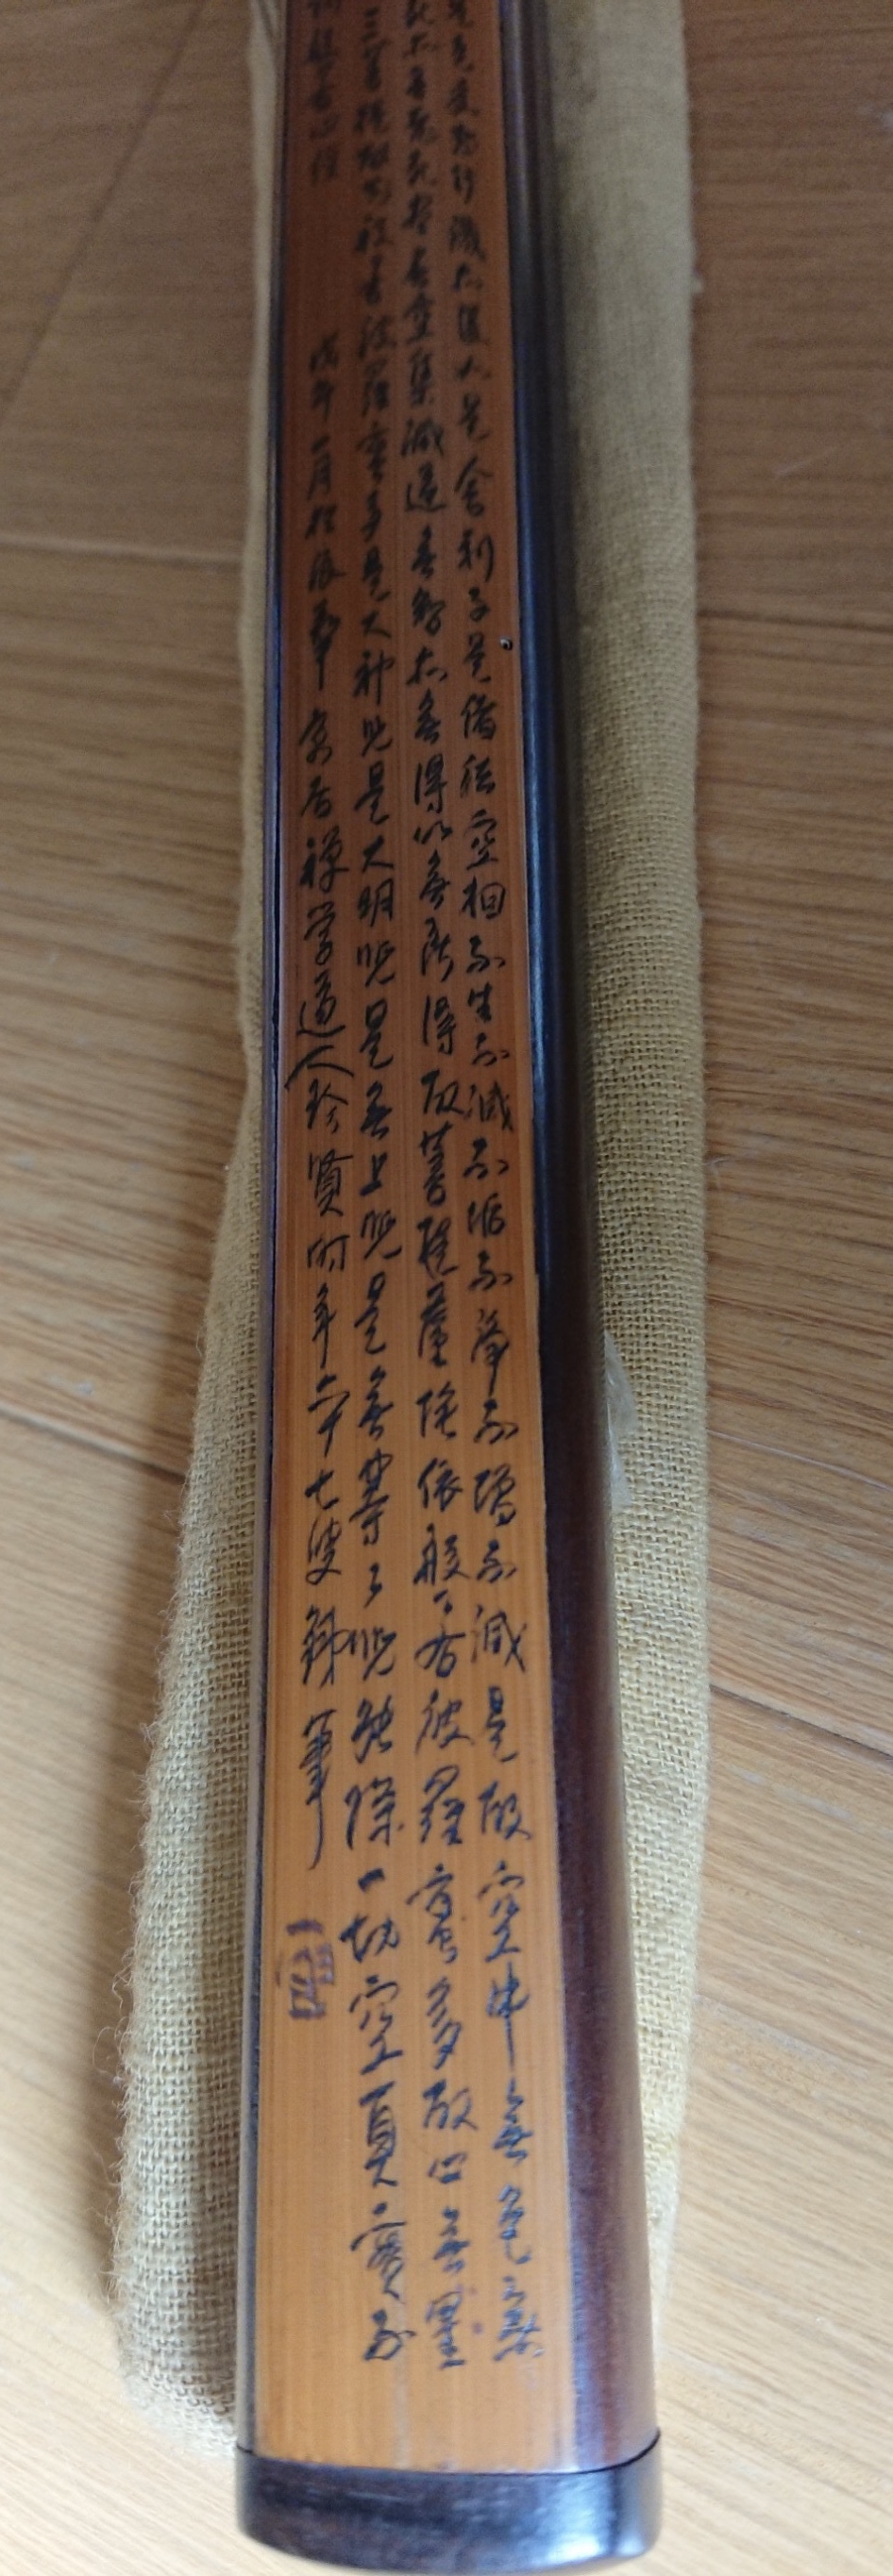 是受想行識亦復如是舍利子是諸法空相不生不滅不垢不淨不增不減是故空中無色無受
亦無老死盡無苦集滅道無智亦無得以無所得故菩提薩埵依般若波羅蜜多故心無罣
三菩提故知般若波羅蜜多是大神咒是大明咒是無上咒是無等等咒能除一切空真實不
般若心經
戊午一月於
居禪學道人 賢時年六十七叟 筆